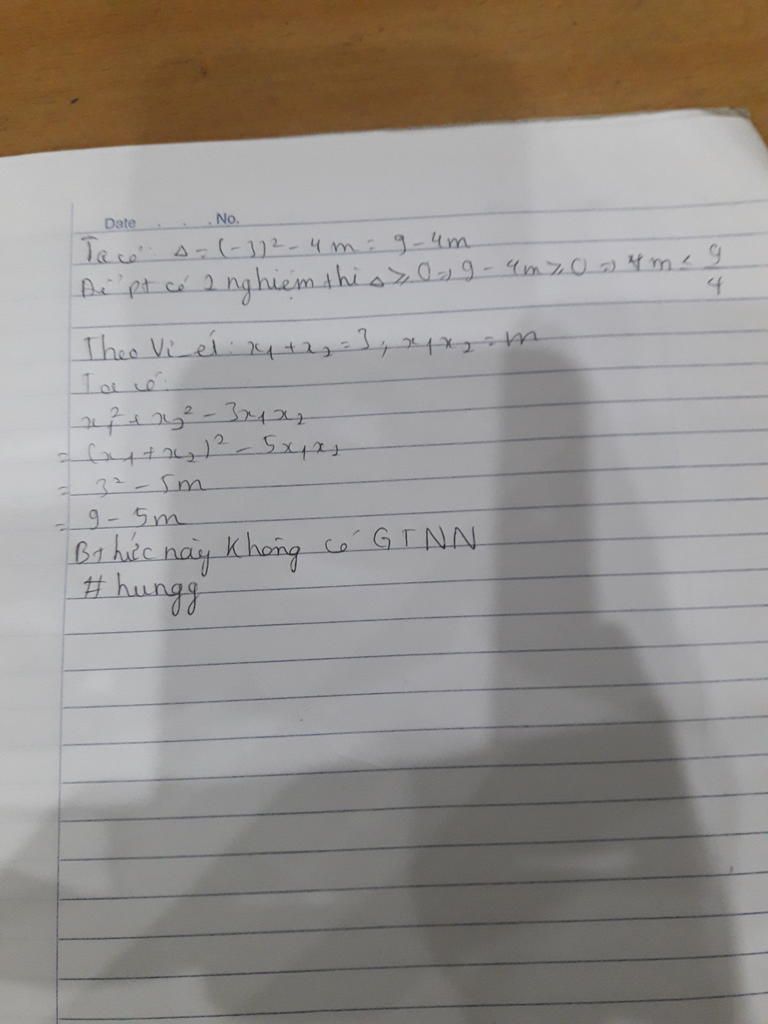 Date . . . No.
Ta có: Δ = (-3)² - 4m = 9 - 4m
Để pt có 2 nghiệm thì Δ ≥ 0 => 9 - 4m ≥ 0 => 4m ≤ 9/4
Theo Vi_ét: x₁ + x₂ = 3; x₁x₂ = m
Ta có:
x₁² + x₂² - 3x₁x₂
= (x₁ + x₂)² - 5x₁x₂
= 3² - 5m
= 9 - 5m
BThức này Không có GTNN
#hungg